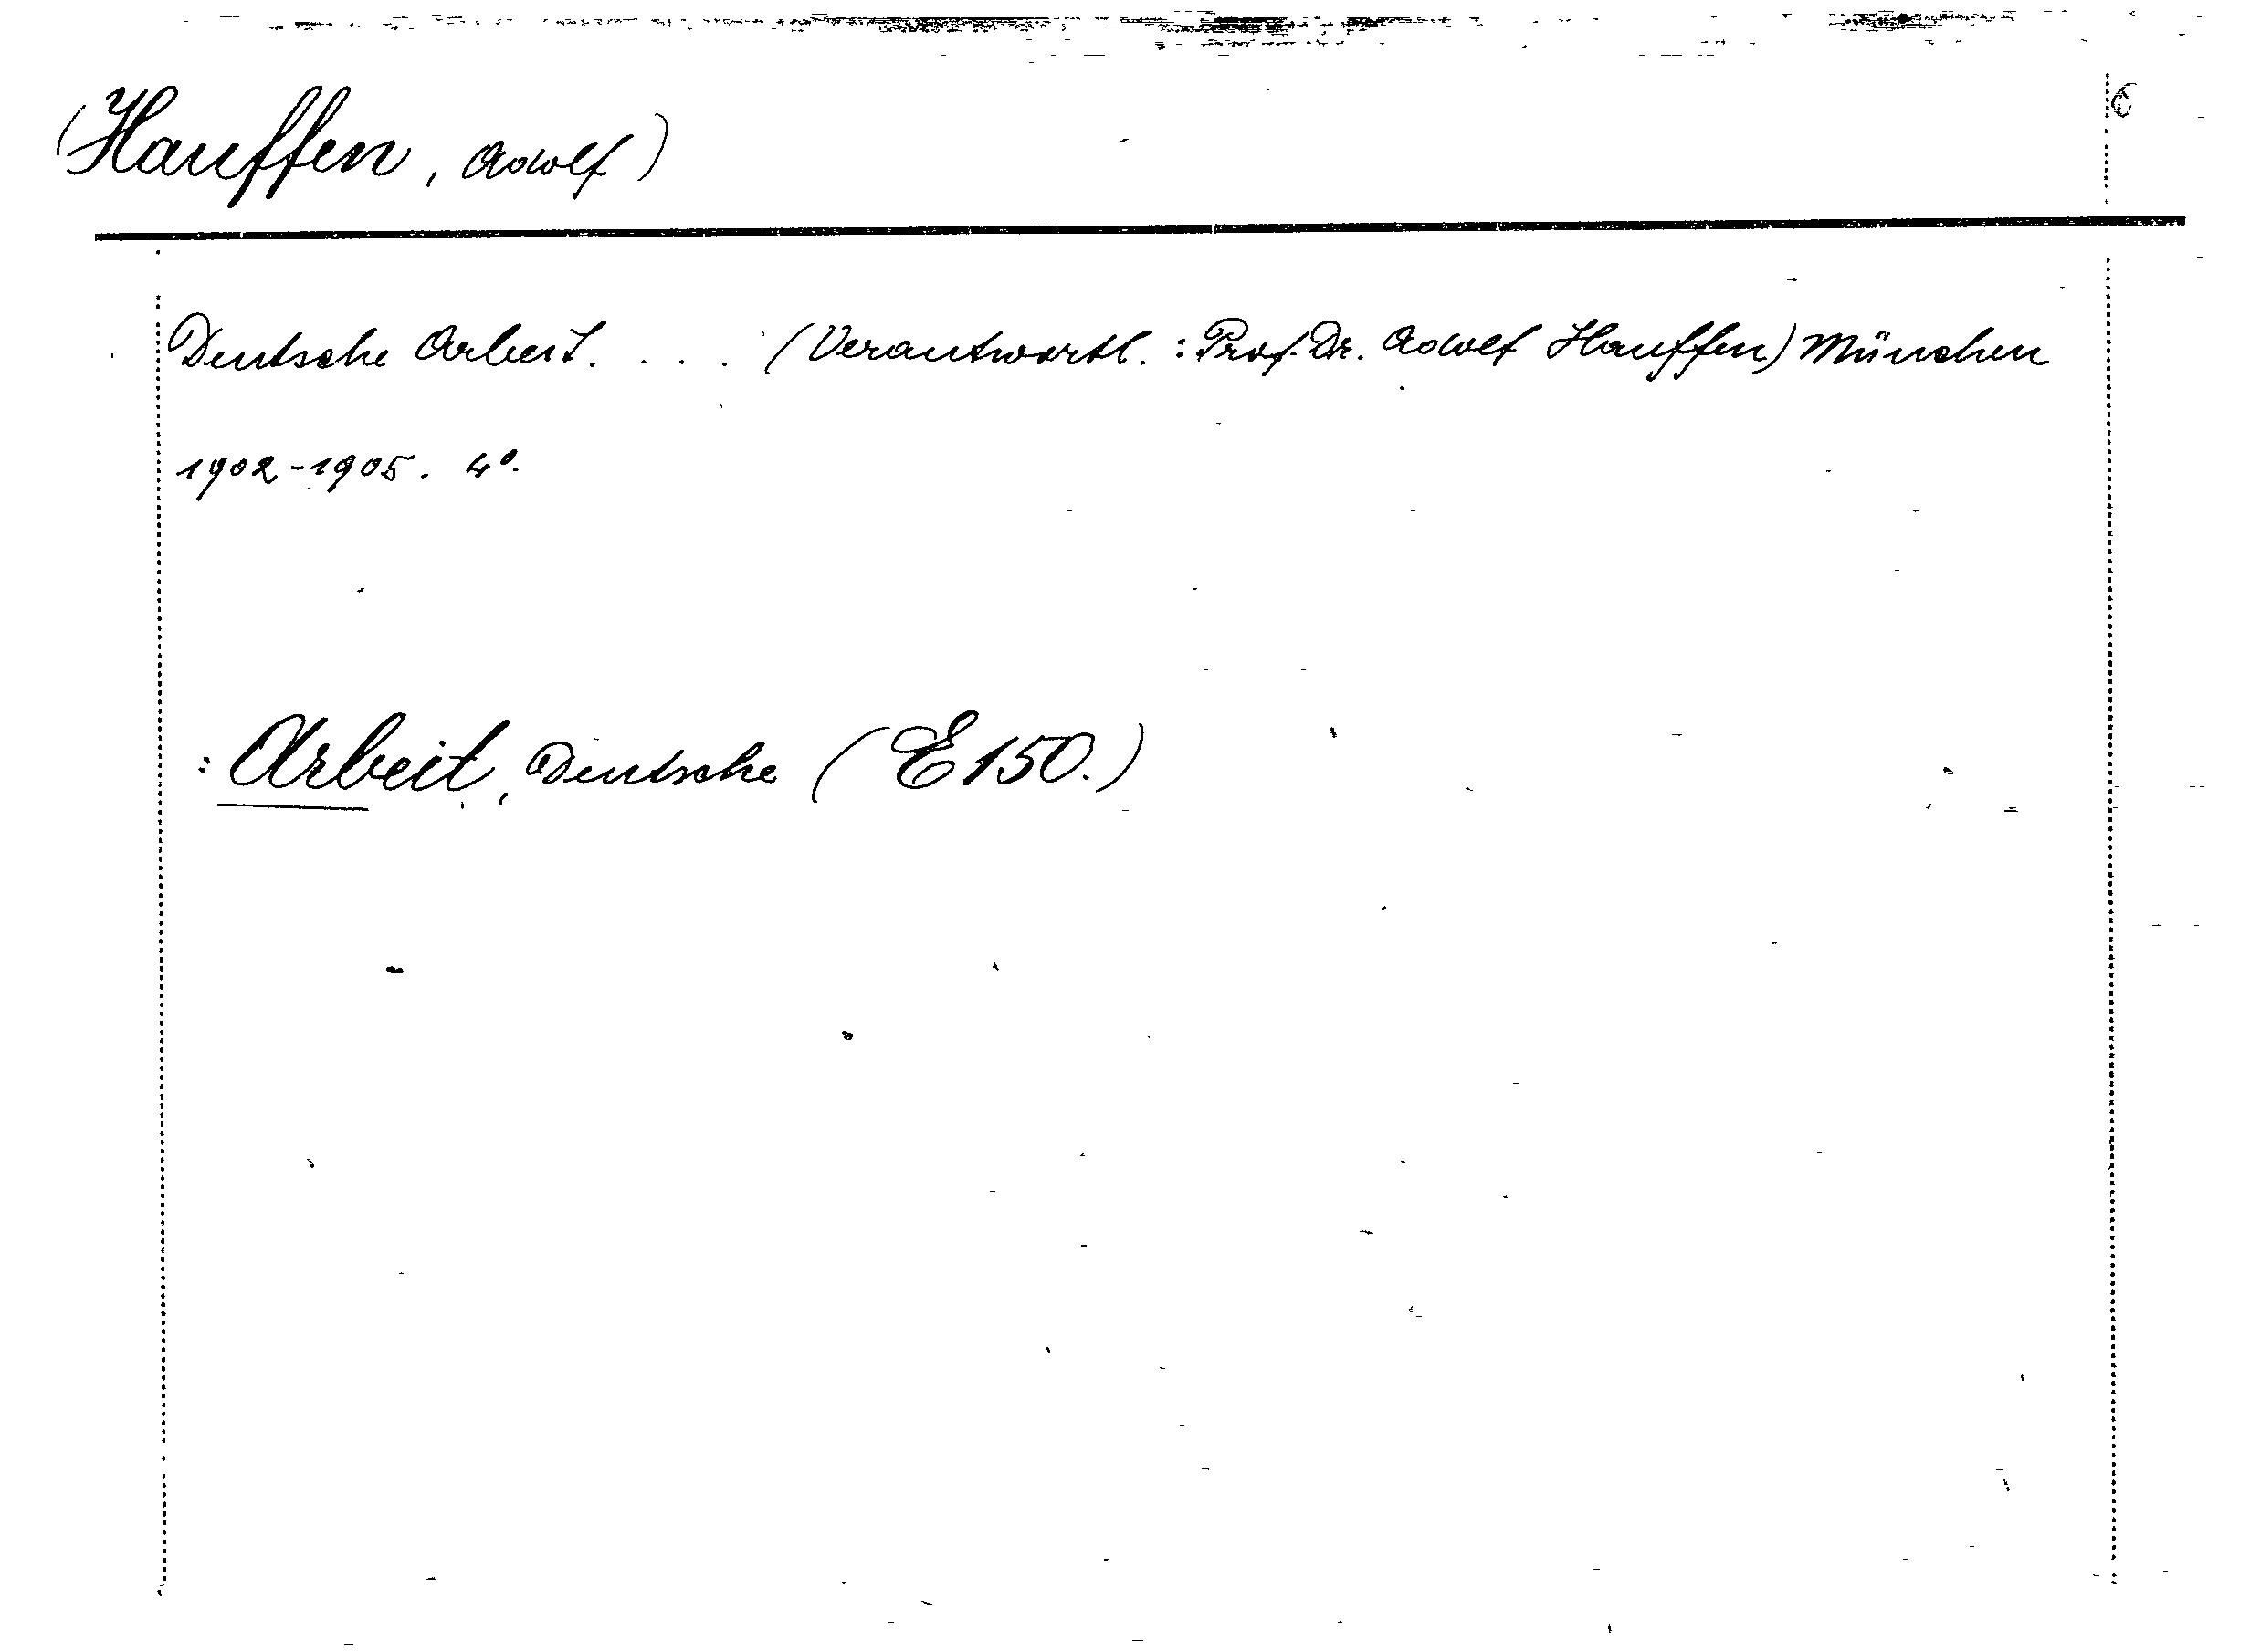 (Hauffen, Adolf)
Deutsche Arbeit. . . . (Verantwortl. : Prof. Dr. Adolf Hauffen) München
1902-1905. 4°.
: Arbeit, Deutsche (E150.)